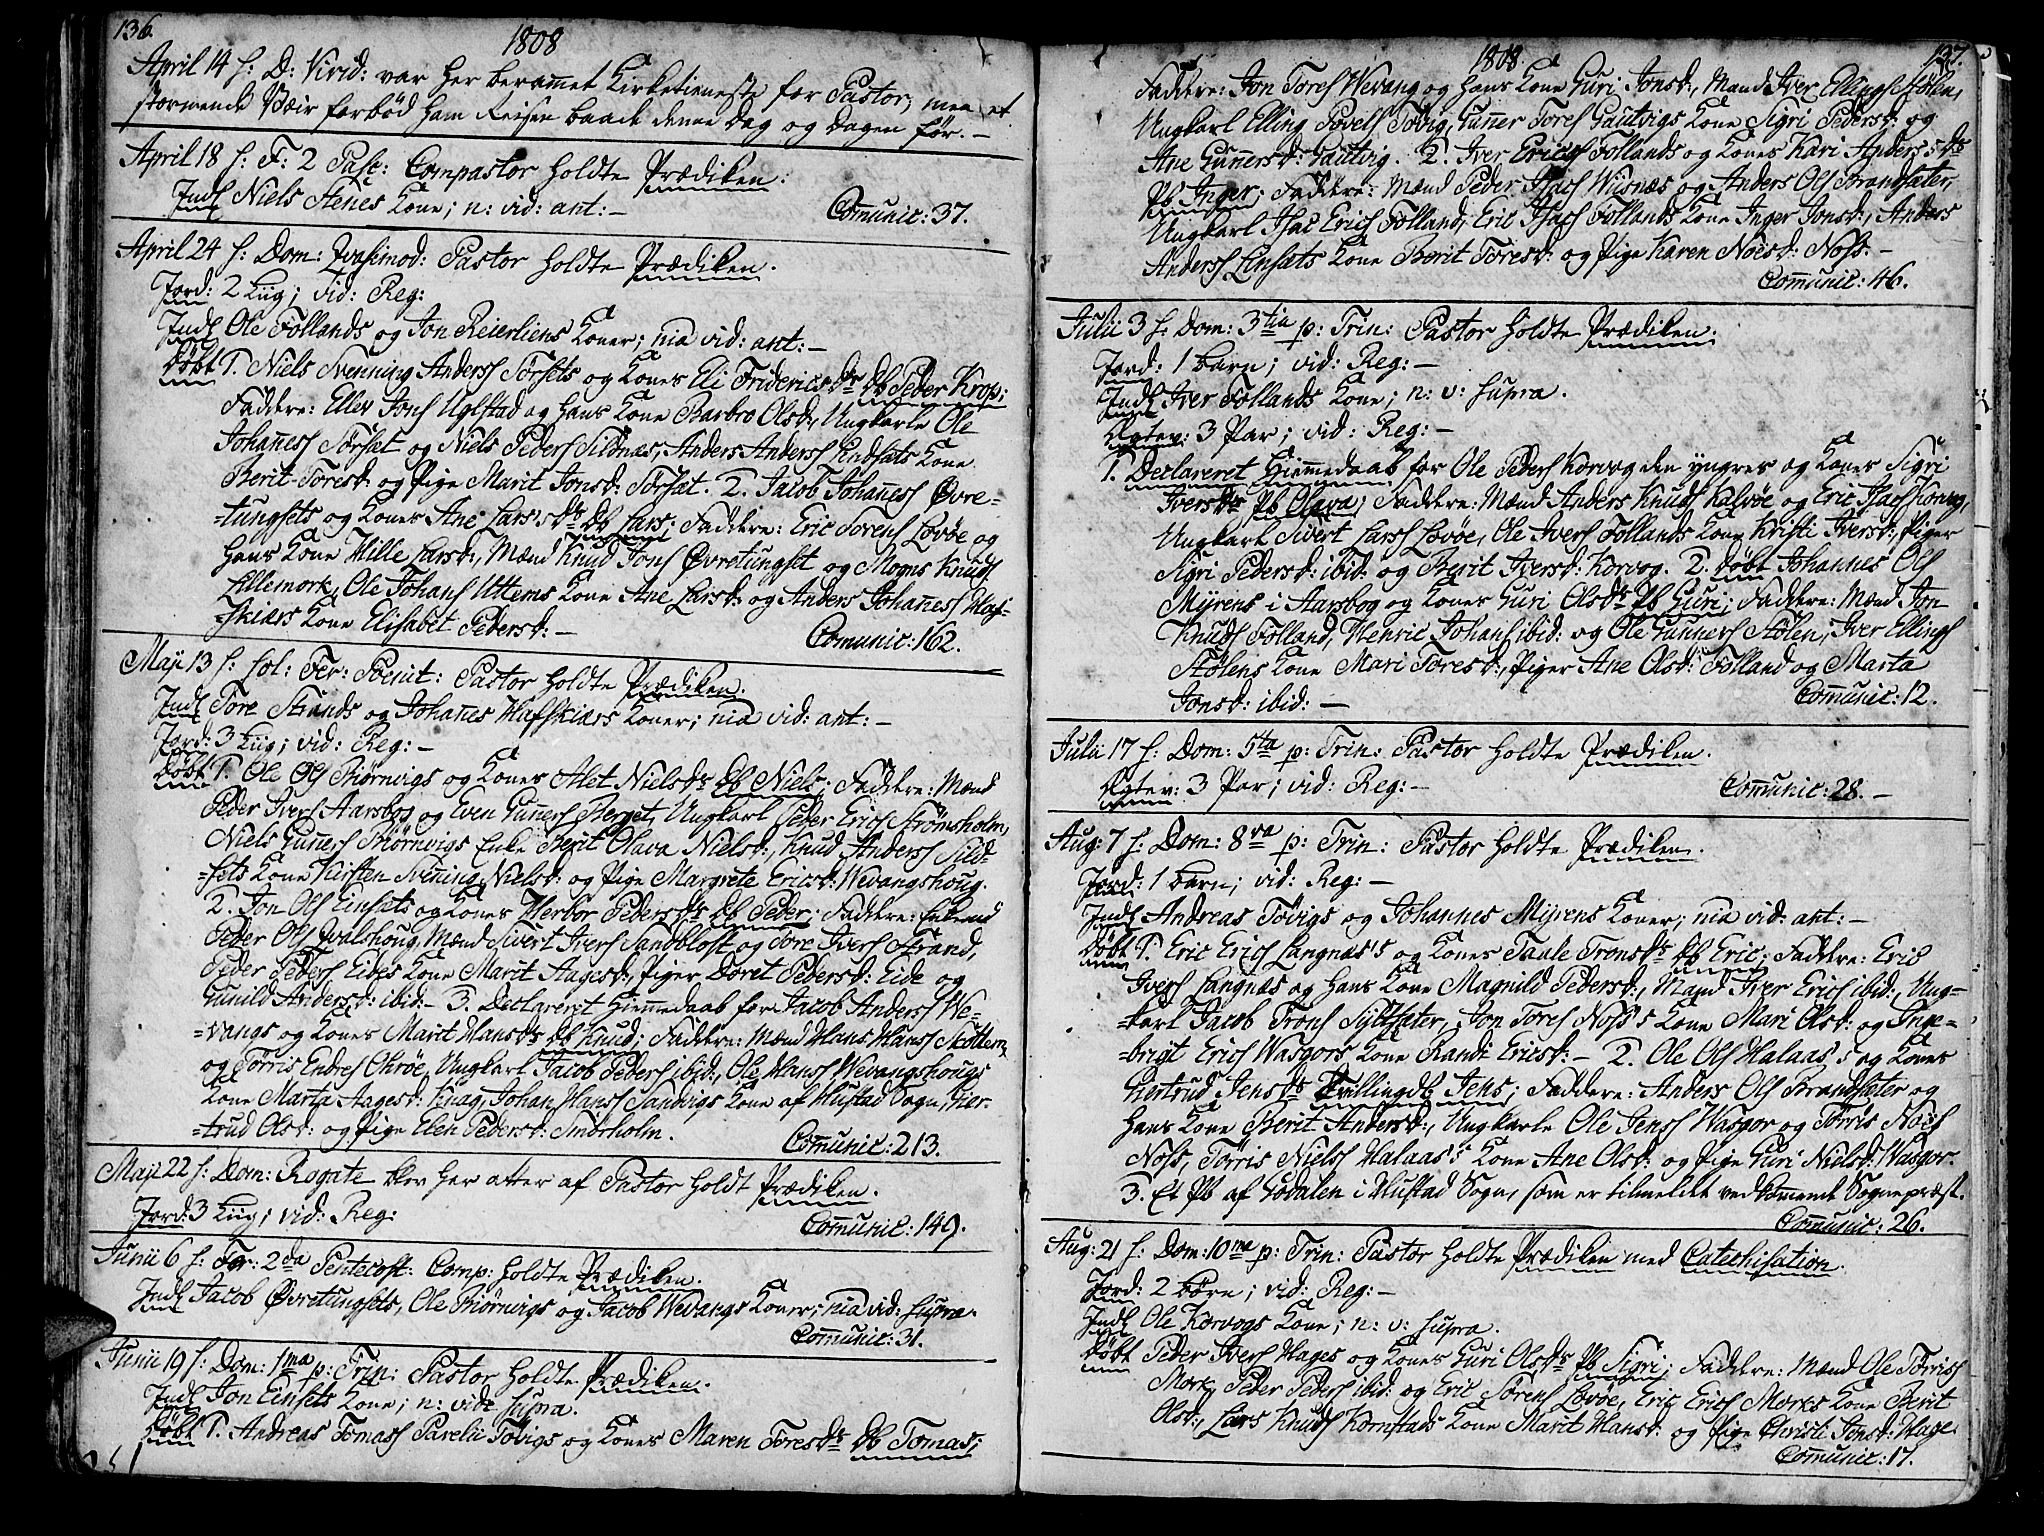 136.
1808
April 14 h: D: Virid: var her berammet Kirketieneste for Pastor, men et
stormende Veir forbød ham Reisen baade denne Dag og Dagen før. —
April 18 h: F: 2 Pasc: Compastor holdte Prædiken:
Indl Niels Stenes Kone; n: vid: ant: —
Comunic: 37.
April 24 h: Dom: Qvasimod: Pastor holdte Prædiken.
Jord: 2 Liig; vid: Reg:
Indl Ole Follands og Jon Reierliens Koner; nia vid: ant: —
Døbt 1. Niels Svenning Anders Torsets og Kones Eli Fridericsdr Db Peder Krop;
Faddere: Ellev Jons Uglstad og hans Kone Barbro Olsd:, Ungkarle Ole
Johannes Torset og Niels Peders Sildnæs, Anders Anders Kndsæts Kone
Berit Toresd: og Pige Marit Jonsd: Torset. 2. Jacob Johannes Øvre-
-tungsets og Kones Ane Larsdr Db Lars; Faddere: Eric Torens Lovøe og
hans Kone Hille Larsd:, Mænd Knud Jons Øvretungset og Mogns Knuds
Lillemork, Ole Johans Uttems Kone Ane Larsd: og Anders Johannes Haf-
-skiærs Kone Elisabet Pedersd: —
Comunic: 162.
Maji 13 h: sol: Fer: Poenit: Pastor holdte Prædiken.
Indl Tore Strands og Johanes Hafskiærs Koner; nia vid: ant: —
Jord: 3 Liig; vid: Reg: —
Døbt 1. Ole Ols Biørnvigs og Kones Alet Nielsdr Db Niels; Faddere: Mænd
Peder Ivers Aarsbog og Even Gunners Berget, Ungkarl Peder Erics Strømsholm,
Niels Gunners Biørnvigs Enke Berit Olava Nielsd:, Knud Anders Sild-
-sets Kone Kirsten Svening Nielsd: og Pige Margrete Ericsd: Wevangshoug.
2. Jon Ols Einsets og Kones Herbor Pedersdr Db Peder; Faddere: Enkemd
Peder Ols Qvalshoug, Mænd Sivert Ivers Sandblost og Tore Ivers Strand,
Peder Peders Eides Kone Marit Aagesd:, Piger Doret Pedersd: Eide og
Gunild Andersd: ibid: — 3. Declareret Hiemmedaab for Jacob Anders We-
-vangs og Kones Marit Hansdr Db Knud; Faddere: Mænd Hans Hans Skottem
og Tørris Endres Ohrøe, Ungkarl Jacob Peders ibid:, Ole Hans Wevangshougs
Kone Marta Aagesd: Knag, Johan Hans Sandvigs Kone af Hustad Sogn, Gier-
-trud Olsd: og Pige Elen Pedersd: Smørholm.
Comunic: 213.
Maji 22 h: Dom: Rogate blev her atter af Pastor holdt Prædiken.
Jord: 3 Liig; vid: Reg:
Comunic: 149.
Junii 6 h: Fer: 2da Pentecost: Comp: holdte Prædiken.
Indl Jacob Øvretungsets, Ole Biørnvigs og Jacob Wevangs Koner; nia vid: supra.
Comunic: 31.
Junii 19 h: Dom: 1ma p: Trin: Pastor holdte Prædiken.
Indl Jon Einsets Kone; n: vide supra.
Døbt 1. Andreas Tomas Parelii Tøvigs og Kones Maren Toresdr Db Tomas;
1808
137.
Faddere: Jon Tores Wevang og hans Kone Guri Jonsd:, Mand Iver Ellings Stølen,
Ungkarl Elling Povels Tøvig, Gunner Tores Gautvigs Kone Sigri Pedersd: og
Ane Gunnersd: Gautvig. 2. Iver Erics Follands og Kones Kari Andersdr
Pb Inger; Faddere: Mænd Peder Isacs Wiisnæs og Anders Ols Brandsæter,
Ungkarl Isac Erics Folland, Eric Isacs Follands Kone Inger Jonsd:, Anders
Anders Einsæts Kone Berit Toresd: og Pige Karen Noesd: Noss. —
Comunic: 46.
Julii 3 h: Dom: 3tia p: Trin: Pastor holdte Prædiken.
Jord: 1 barn; vid: Reg: —
Indl Iver Follands Kone; n: v: supra.
Egtev: 3 Par; vid: Reg: —
1. Declareret Hiemmedaab for Ole Peders Korvog den yngres og Kones Sigri
Iversdr Pb Olava; Faddere: Mænd Anders Knuds Kalvøe og Eric Isacs Koring,
Ungkarl Sivert Lars Lovøe, Ole Ivers Follands Kone Kristi Iversd: Piger
Sigri Pedersd: ibid: og Berit Iversd: Korvog. 2. Døbt Johannes Ols
Myrens i Aarsbog og Kones Guri Olsdr Pb Guri; Faddere: Mænd Jon
Knuds Folland, Henric Johans ibid: og Ole Gunners Stølen, Iver Ellings
Stølens Kone Mari Toresd:, Piger Ane Olsd: Folland og Marta
Jonsd: ibid: —
Comunic: 12.
Julii 17 h: Dom: 5ta p: Trin: Pastor holdte Prædiken.
Egtev: 3 Par; vid: Reg: —
Comunic: 28. —
Aug: 7 h: Dom: 8va p: Trin: Pastor holdte Prædiken.
Jord: 1 barn; vid: Reg: —
Indl Andreas Tøvigs og Johannes Myrens Koner; nia vid: ant: —
Døbt 1. Eric Erics Langnæs's og Kones Paule Tronsdr Db Eric; Faddere: Eric
Ivers Langnæs og hans Kone Magnild Pedersd:, Mand Iver Erics ibid:, Ung-
-karl Jacob Trons Syltsæter, Jon Tores Noss's Kone Mari Olsd: og Inge-
-brigt Erics Wasgors Kone Randi Ericsd: — 2. Ole Ols Halaas's og Kones
Gertrud Jensdr Tvillingdb Jens; Faddere: Anders Ols Brandsæter og
hans Kone Berit Andersd:, Ungkarle Ole Jens Wasgor og Tørris Noes
Noss, Tørris Niels Halaas's Kone Ane Olsd: og Pige Guri Nielsd: Wasgor.
3. Et Pb af Godalen i Hustad Sogn, som er tilmeldet vedkomende Sognepræst.
Comunic: 26.
Aug: 21 h: Dom: 10ma p: Trin: Pastor holdte Prædiken med Catechisation.
Jord: 2 børn; vid: Reg: —
Indl Ole Korvogs Kone; n: v: supra.
Døbt Peder Ivers Hages og Kones Guri Olsdr Pb Sigri; Faddere: Mænd Ole Tørris
Mork, Peder Peders ibid: og Eric Sørens Lovøe, Eric Erics Morks Kone Berit
Olsd:, Lars Knuds Kornstads Kone Marit Hansd: og Pige Christi Jonsd: Hage.
Comunic: 17.